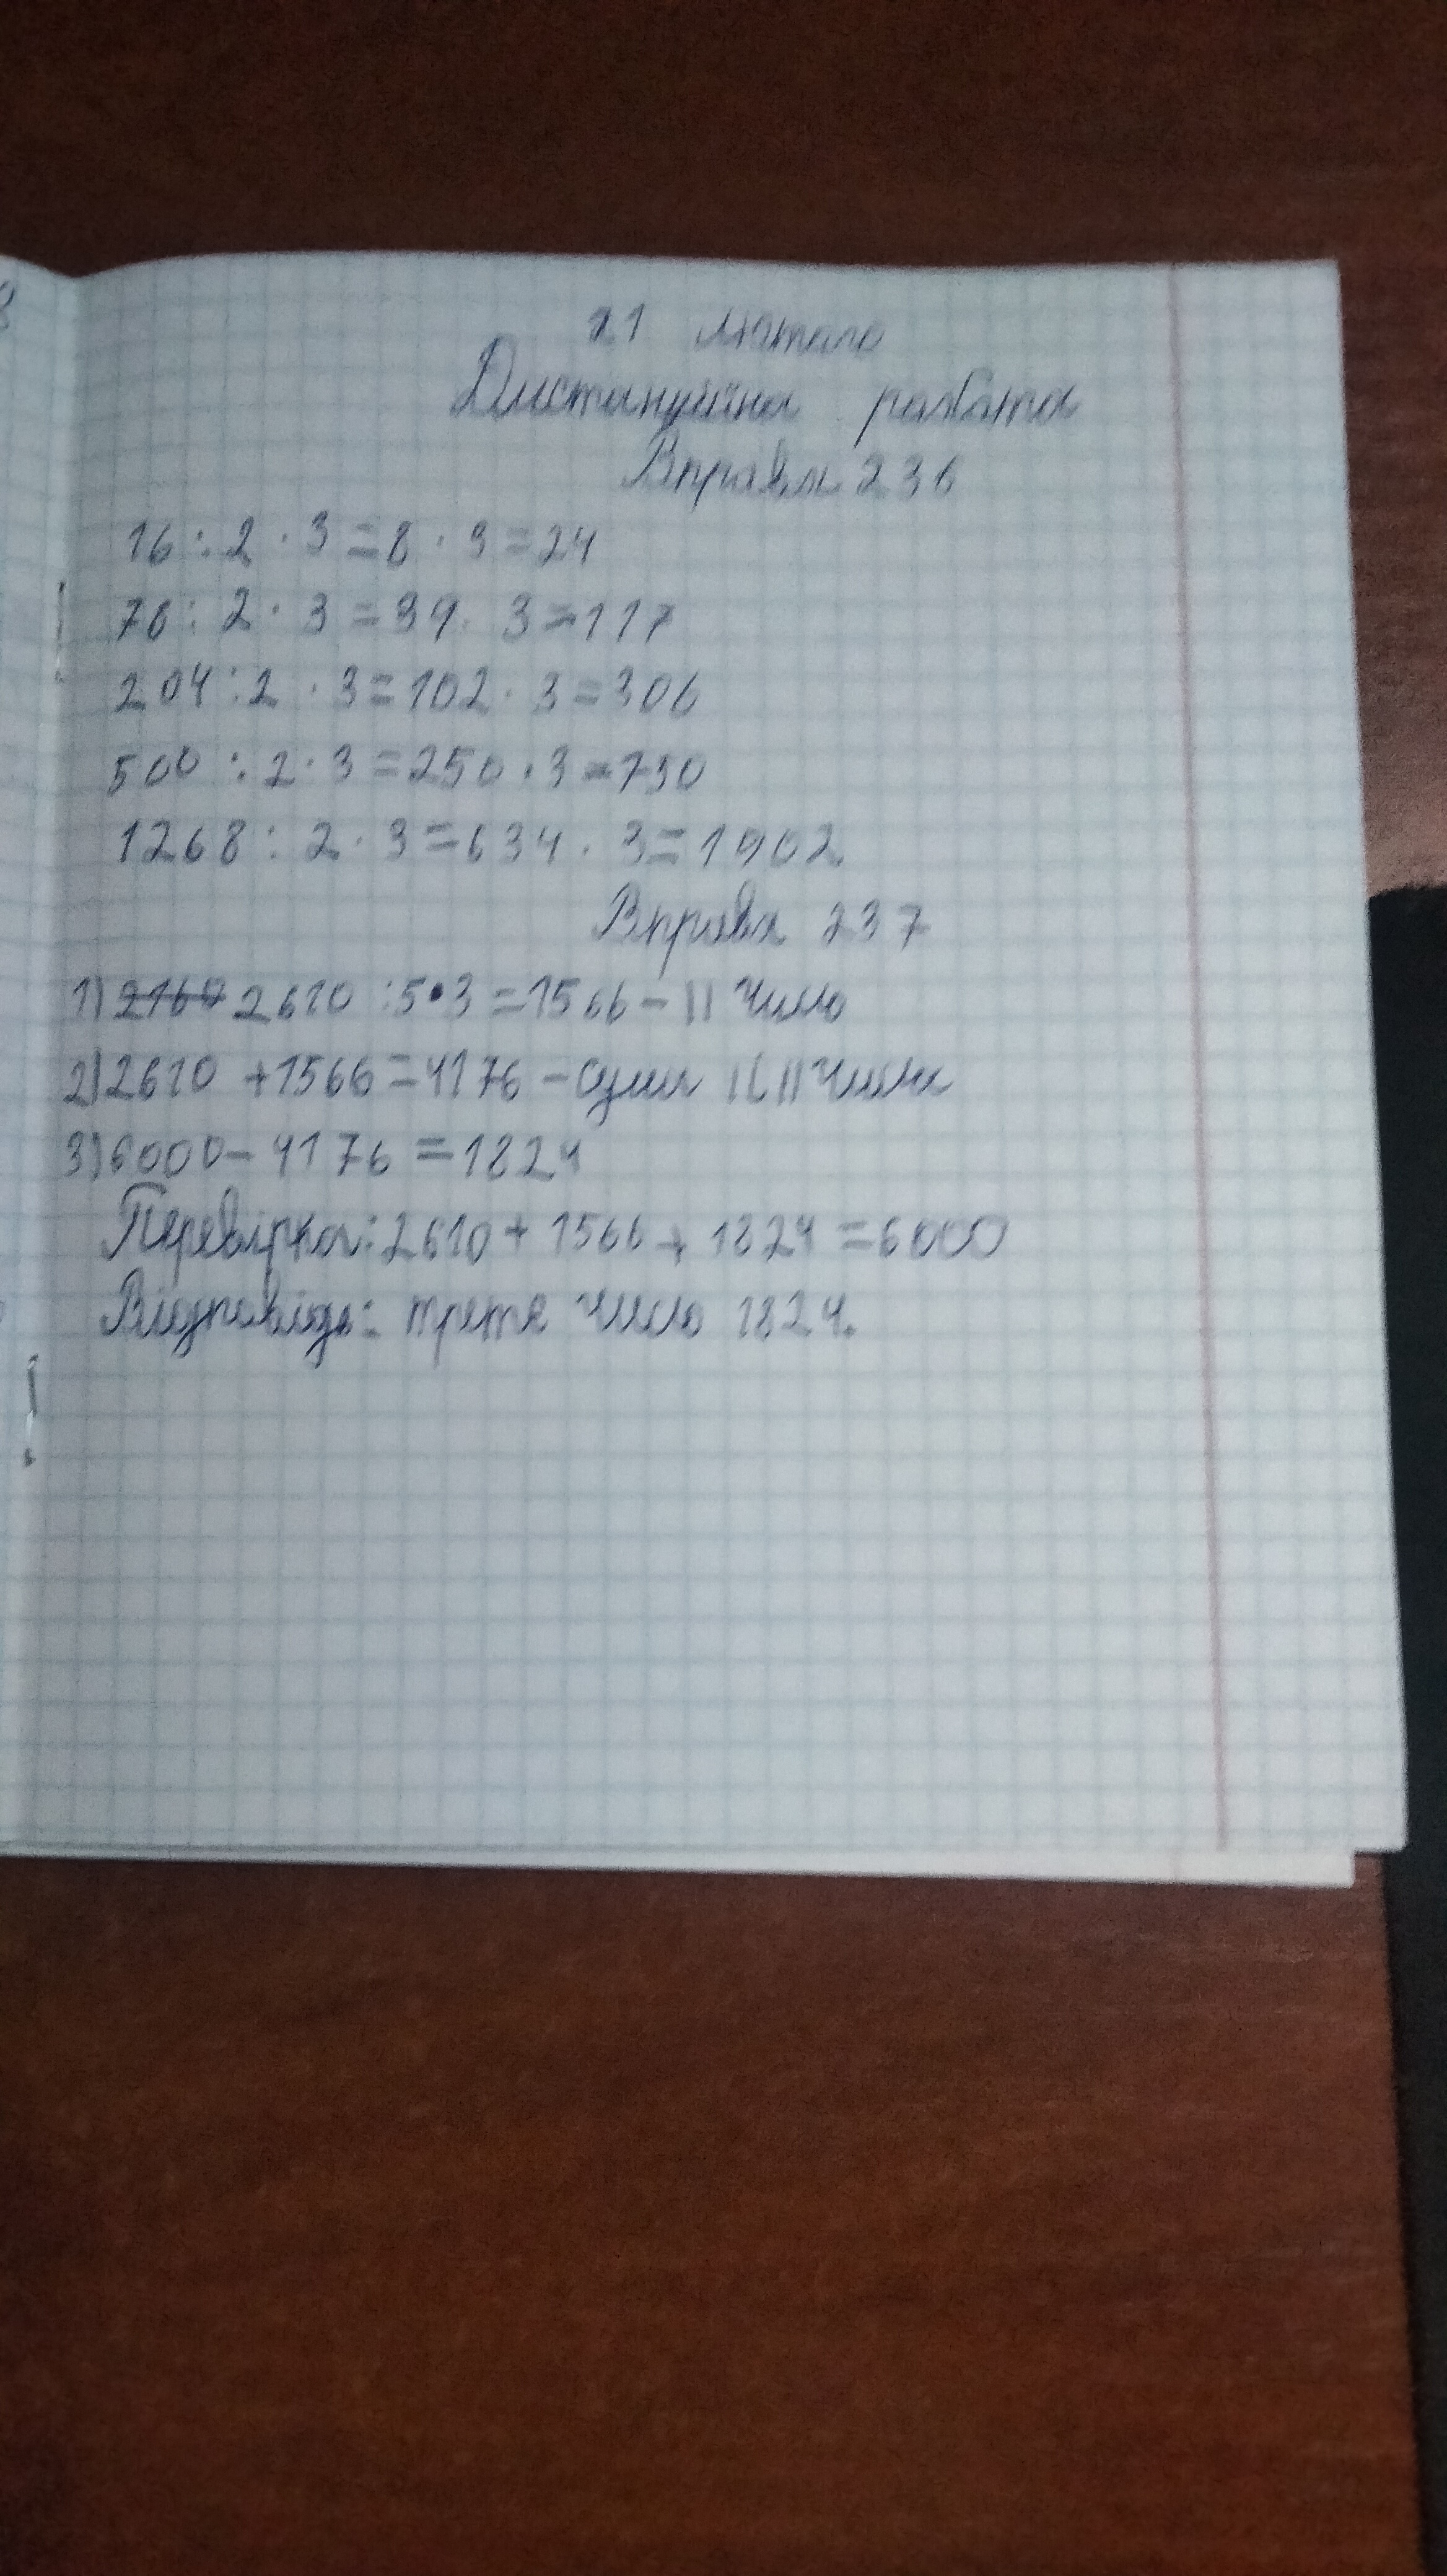 21 лютого
Дистанційна работа
Вправа 236
16 : 2 · 3 = 8 · 3 = 24
78 : 2 · 3 = 39 · 3 = 117
204 : 2 · 3 = 102 · 3 = 306
500 : 2 · 3 = 250 · 3 = 750
1268 : 2 · 3 = 634 · 3 = 1902
Вправа 237
1) 2610 : 5 · 3 = 1566 - II число
2) 2610 + 1566 = 4176 - сума I і II числа
3) 6000 - 4176 = 1824
Перевірка: 2610 + 1566 + 1824 = 6000
Відповідь: третє число 1824.